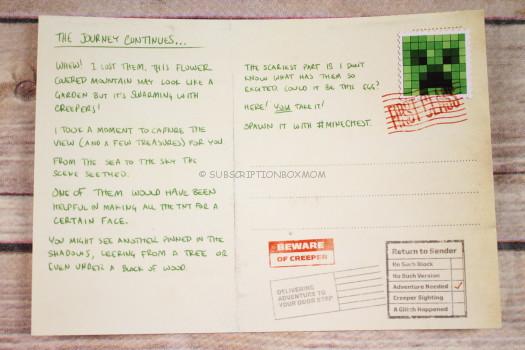 THE JOURNEY CONTINUES...
WHEW! I LOST THEM, THIS FLOWER
COVERED MOUNTAIN MAY LOOK LIKE A
GARDEN BUT IT'S SWARMING WITH
CREEPERS!
I TOOK A MOMENT TO CAPTURE THE
VIEW (AND A FEW TREASURES) FOR YOU.
FROM THE SEA TO THE SKY THE
SCENE SEETHED.
ONE OF THEM WOULD HAVE BEEN
HELPFUL IN MAKING ALL THE TNT FOR A
CERTAIN FACE.
YOU MIGHT SEE ANOTHER PINNED IN THE
SHADOWS, LEERING FROM A TREE OR
EVEN UNDER A BLOCK OF WOOD.
THE SCARIEST PART IS I DON'T
KNOW WHAT HAS THEM SO
EXCITED. COULD IT BE THIS EGG?
HERE! YOU TAKE IT!
SPAWN IT WITH #MINECHEST.
FIRST CLASS
© SUBSCRIPTIONBOXMOM
BEWARE
OF CREEPER
DELIVERING
ADVENTURE TO
YOUR DOOR STEP
Return to Sender
No Such Block
No Such Version
Adventure Needed
Creeper Sighting
A Glitch Happened